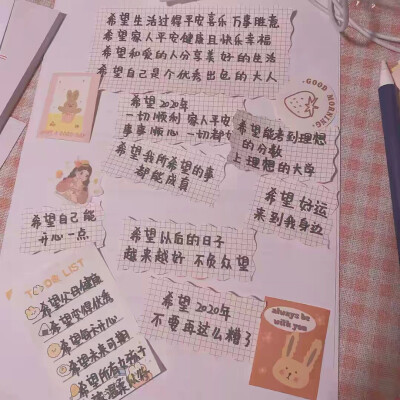 希望生活过得平安喜乐 万事胜意
希望家人平安健康且快乐幸福
希望和爱的人分享美好的生活
希望自己是个优秀出色的大人
GOOD MORNING
希望2020年
一切顺利 家人平安
事事顺心 一切都
希望能考到理想
的分数
上理想的大学
希望我所希望的事
都能成真
希望好运
来到我身边
希望自己能
开心一点
希望以后的日子
越来越好 不负众望
TO DO LIST
希望父母健康
希望变得优秀
希望每天开心
希望未来可期
希望所有女孩子
希望2020年
不要再这么糟了
always be
with you